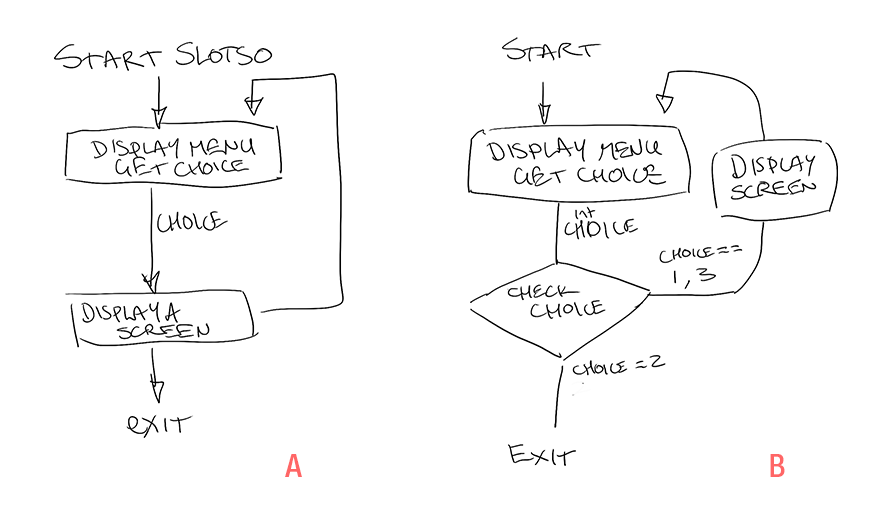 START SLOTSO
DISPLAY MENU
GET CHOICE
CHOICE
DISPLAY A
SCREEN
EXIT
A
START
DISPLAY MENU
GET CHOICE
int
CHOICE
CHECK
CHOICE
CHOICE==
1,3
DISPLAY
SCREEN
CHOICE=2
EXIT
B